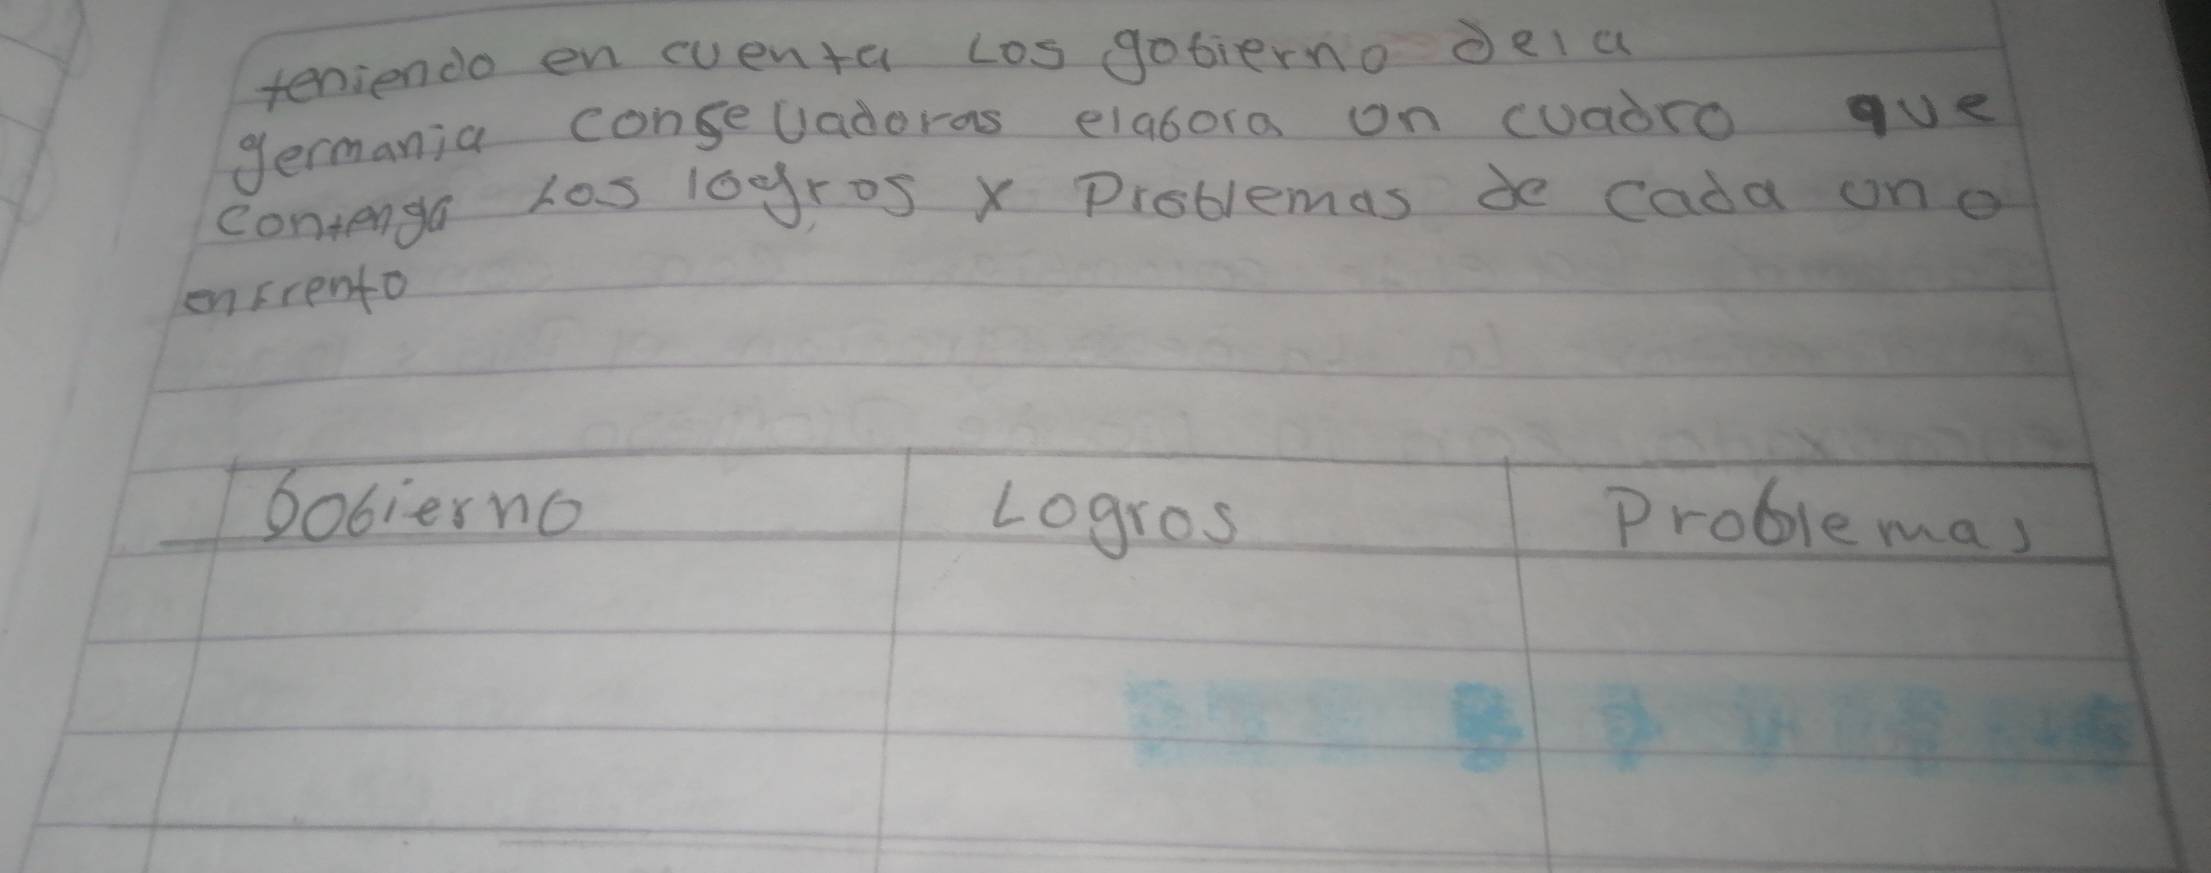 teniendo en cuenta Los gobierno dela
germania conseUadoras elabora un cuadro que
contenga Los logros x Problemas de cada uno
enfrento
Gobierno Logros Problemas